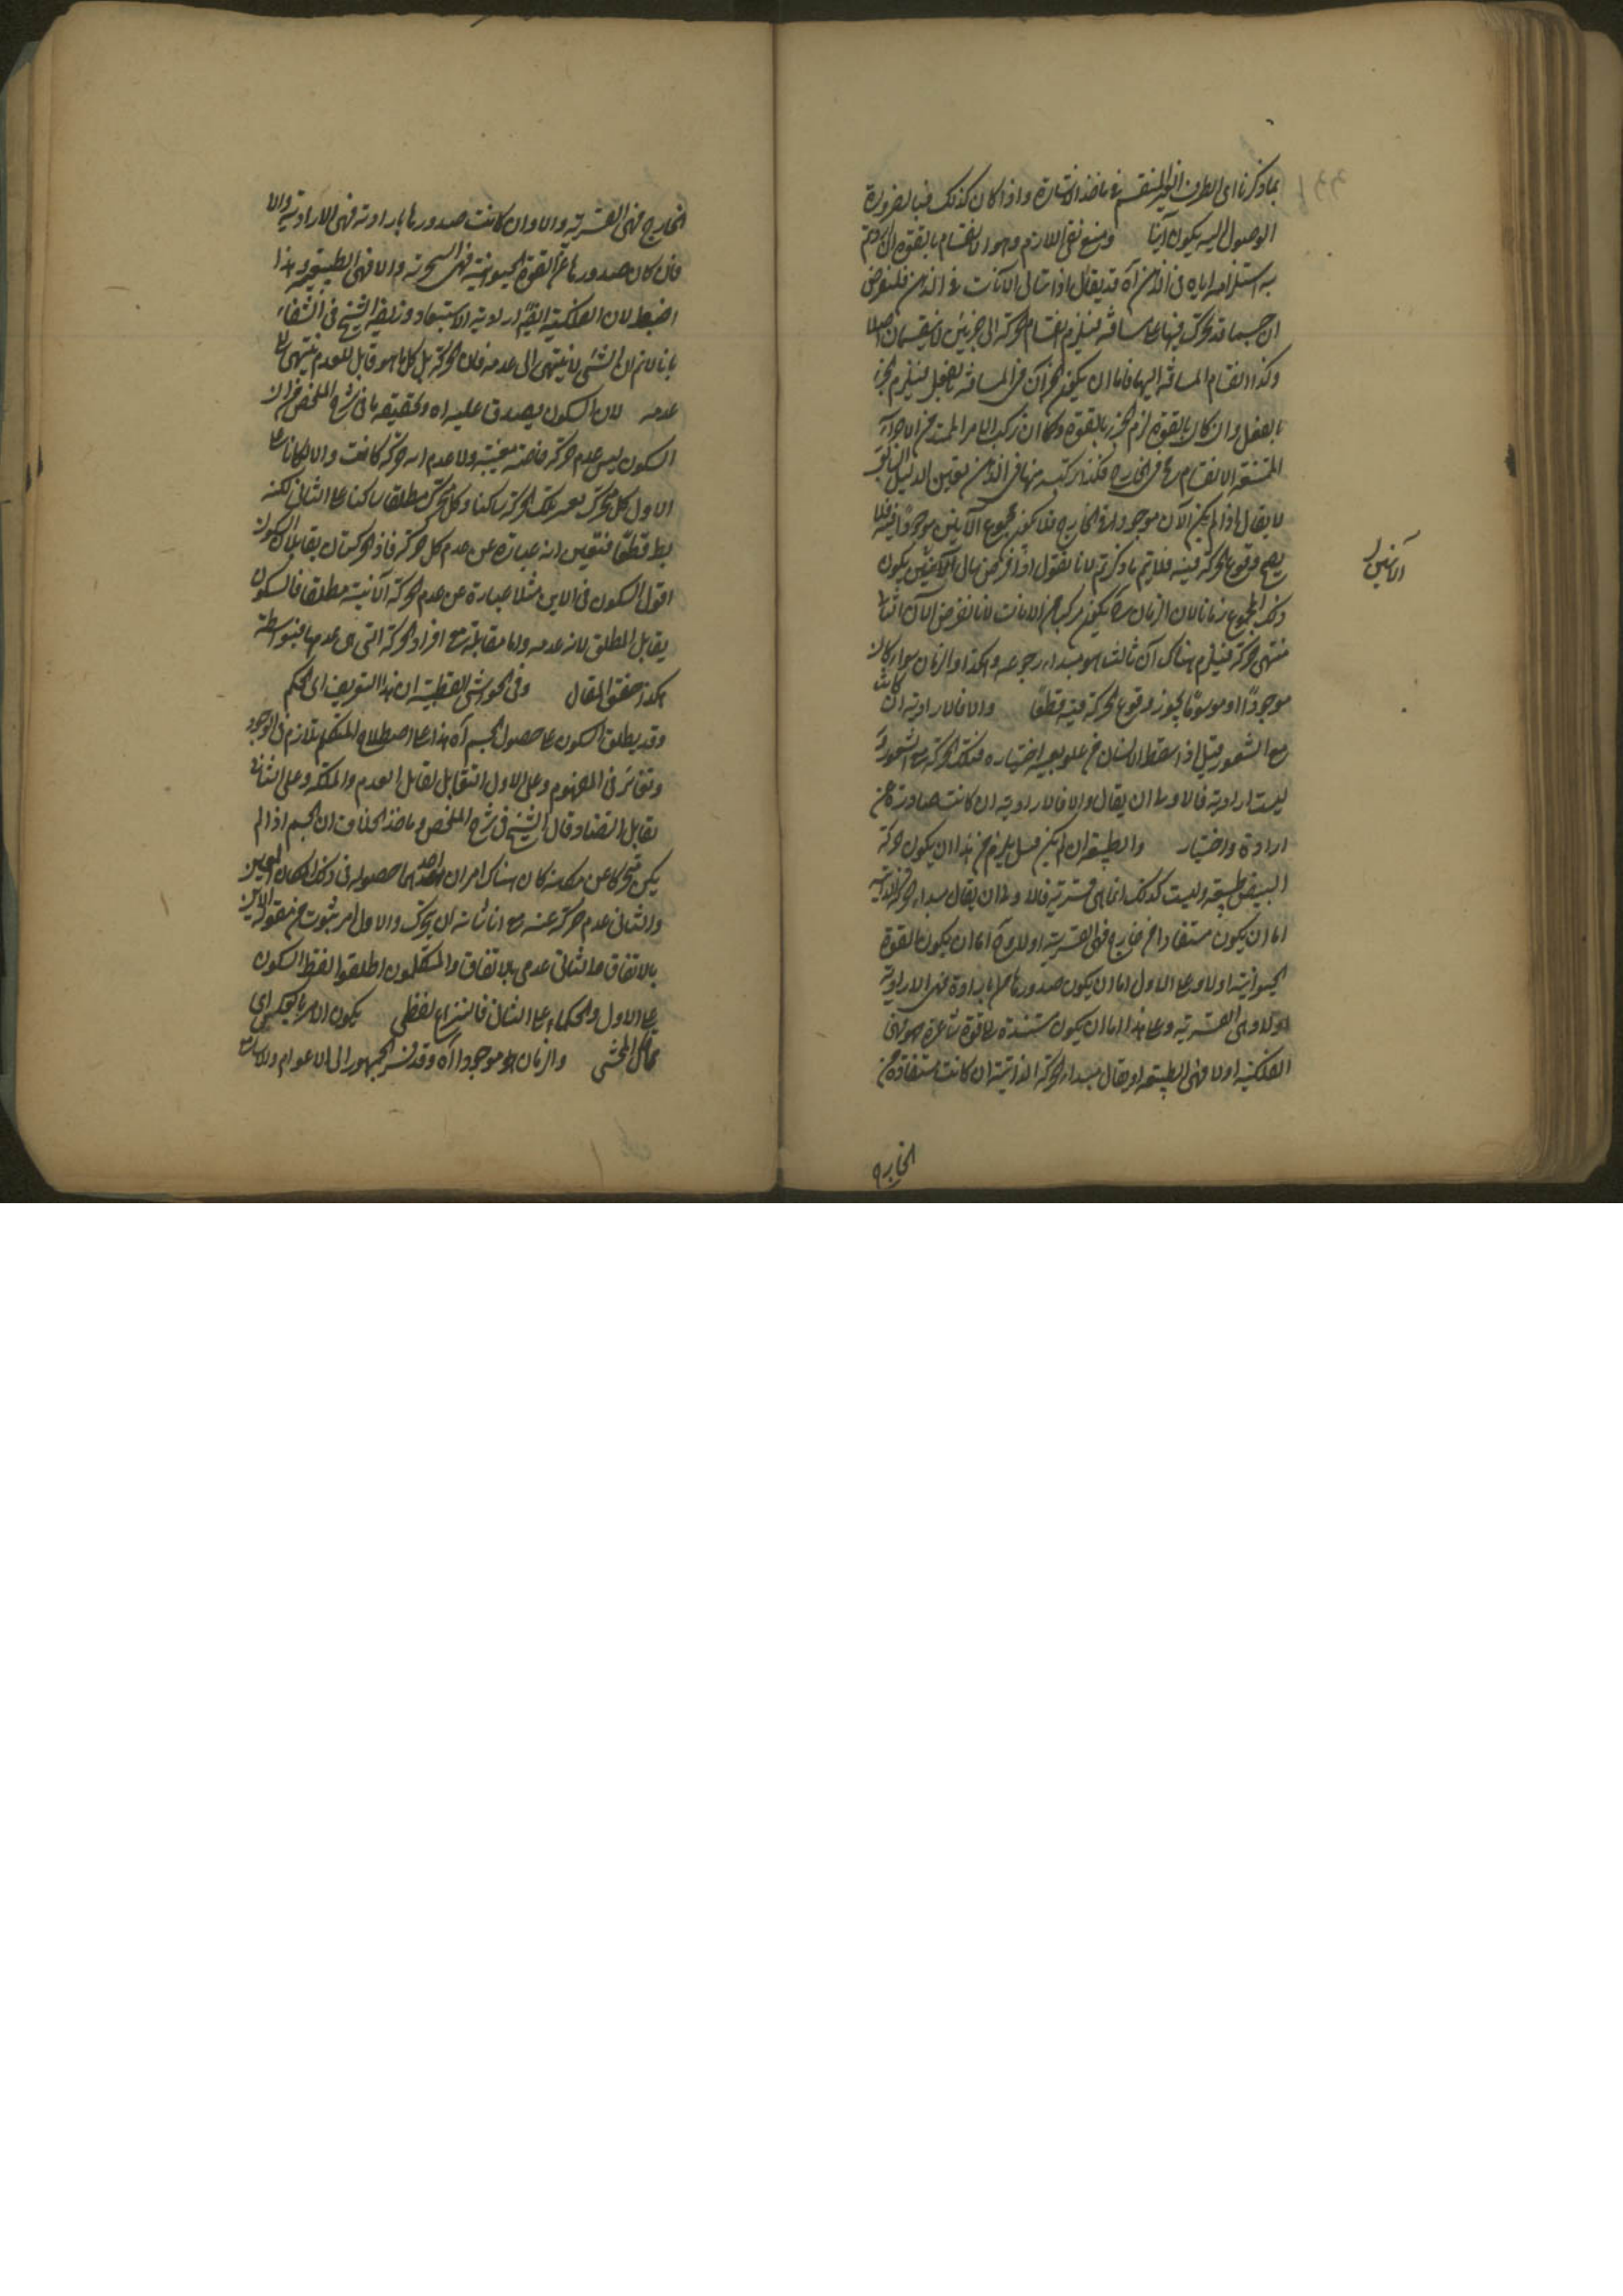 بما ذكرنا اى الطرف الغير المنقسم فى ماخذ الاشارة واذا كان كذلك فبالضرورة
الوصول اليه يكون آنيا ومنع نفى اللازم وهو الانقسام بالقوة ان اردتم
به استلزامه اياه فى الذهن آه قد يقال اذا تتالى الآنات فى الذهن فلنفرض
ان جسما قد تحرك فيها على مسافة فيلزم انقسام الحركة الى جزئين لا ينقسمان اصلا
وكذا انقسام المسافة اليهما فاما ان يكون الجزآن فى المسافة بالفعل فيلزم الجزء
بالفعل وان كان بالقوة لزم الجزء بالقوة وكما ان تركب الامر الممتد من الاجزاء
الممتنعة الانقسام مح فى الخارج فكذا تركبه منها فى الذهن بعين الدليل السابق
لا يقال اذا لم يكن الآن موجودا فى الخارج فلا يكون مجموع الآنين موجودا فيه فلا
يصح وقوع الحركة فيه فلا يتم ما ذكرتم لانا نقول اذا فرض تتالى الآنين يكون
ذلك المجموع زمانا لان الزمان ح يكون مركبا من الآنات لانا نفرض الآن الثانى
منتهى حركة فيلزم هناك آن ثالث هو مبداء رجوعه وهكذا والزمان سواء كان
موجودا او موهوما يجوز وقوع الحركة فيه قطعا والا فالارادية ان كانت
مع الشعور قيل اذا سقط الانسان من علو بغير اختياره فتلك الحركة مع الشعور
ليست ارادية فالاولى ان يقال والا فالارادية ان كانت صادرة عن
ارادة واختيار والطبيعة ان لم يكن قيل يلزم من هذا ان يكون حركة
النبض طبيعية وليست كذلك انما هى قسرية فالاولى ان يقال مبداء الحركة الذاتية
اما ان يكون مستفادا من خارج فهى القسرية اولا وح اما ان يكون بالقوة
الحيوانية اولا وعلى الاول اما ان يكون صدورها عنها بارادة فهى الارادية
اولا وهى القسرية وعلى هذا اما ان يكون مستندة الى قوة شاعرة فهو فى
الفلكية اولا فهى الطبيعة او يقال مبداء الحركة الذاتية ان كانت مستفادة من
الخارج
الآنين
الخارج فهى القسرية والا وان كانت صدورها بارادته فهى الارادية والا
فان كان صدورها عن القوة الحيوانية فهى التسخيرية والا فهى الطبيعية وهذا
اضبط لان الفلكية ايضا ارادية الاستبعاد وزيفه الشيخ فى الشفاء
بانا لا نم ان الشئ لا ينتهى الى عدمه فان الحركة بل كل ما هو قابل للعدم ينتهى الى
عدمه لان السكون يصدق عليه آه وتحقيقه ما فى شرح الملخص من ان
السكون ليس عدم حركة خاصة معينة ولا عدم اية حركة كانت والا لكان على
الاول كل متحرك بغير تلك الحركة ساكنا وكل متحرك مطلقا ساكنا على الثانى لكنه
بط قطعا فتعين انه عبارة عن عدم كل حركة فاذا الحركتان يقابلان السكون
اقول السكون فى الاين مثلا عبارة عن عدم الحركة الآنية مطلقا فالسكون
يقابل المطلق لانه عدمه واما مقابلته مع افراد الحركة التى هى عدمها فبواسطة
هكذا حقق المقال وفى الحواشى القطبية ان هذا التعريف اى الحكم
وقد يطلق السكون على حصول الجسم آه هذا على اصطلاح المتكلم تلازم فى الوجود
وتغاير فى المفهوم وعلى الاول التقابل تقابل العدم والملكة وعلى الثانى
تقابل التضاد وقال الشيخ فى شرح الملخص وماخذ الخلاف ان الجسم اذا لم
يكن متحركا عن مكانه كان هناك امران احدهما حصوله فى ذلك المكان المعين
والثانى عدم حركة عنه مع ان من شانه ان يتحرك والاول امر ثبوتى من مقولة الاين
بالاتفاق والثانى عدمى بالاتفاق والمتكلمون اطلقوا لفظ السكون
على الاول والحكماء على الثانى فالنزاع لفظى يكون الامر بالعكس اى
قال المحشى والزمان لو موجود آه وقد فسر الجمهور الى الاعوام والساعات